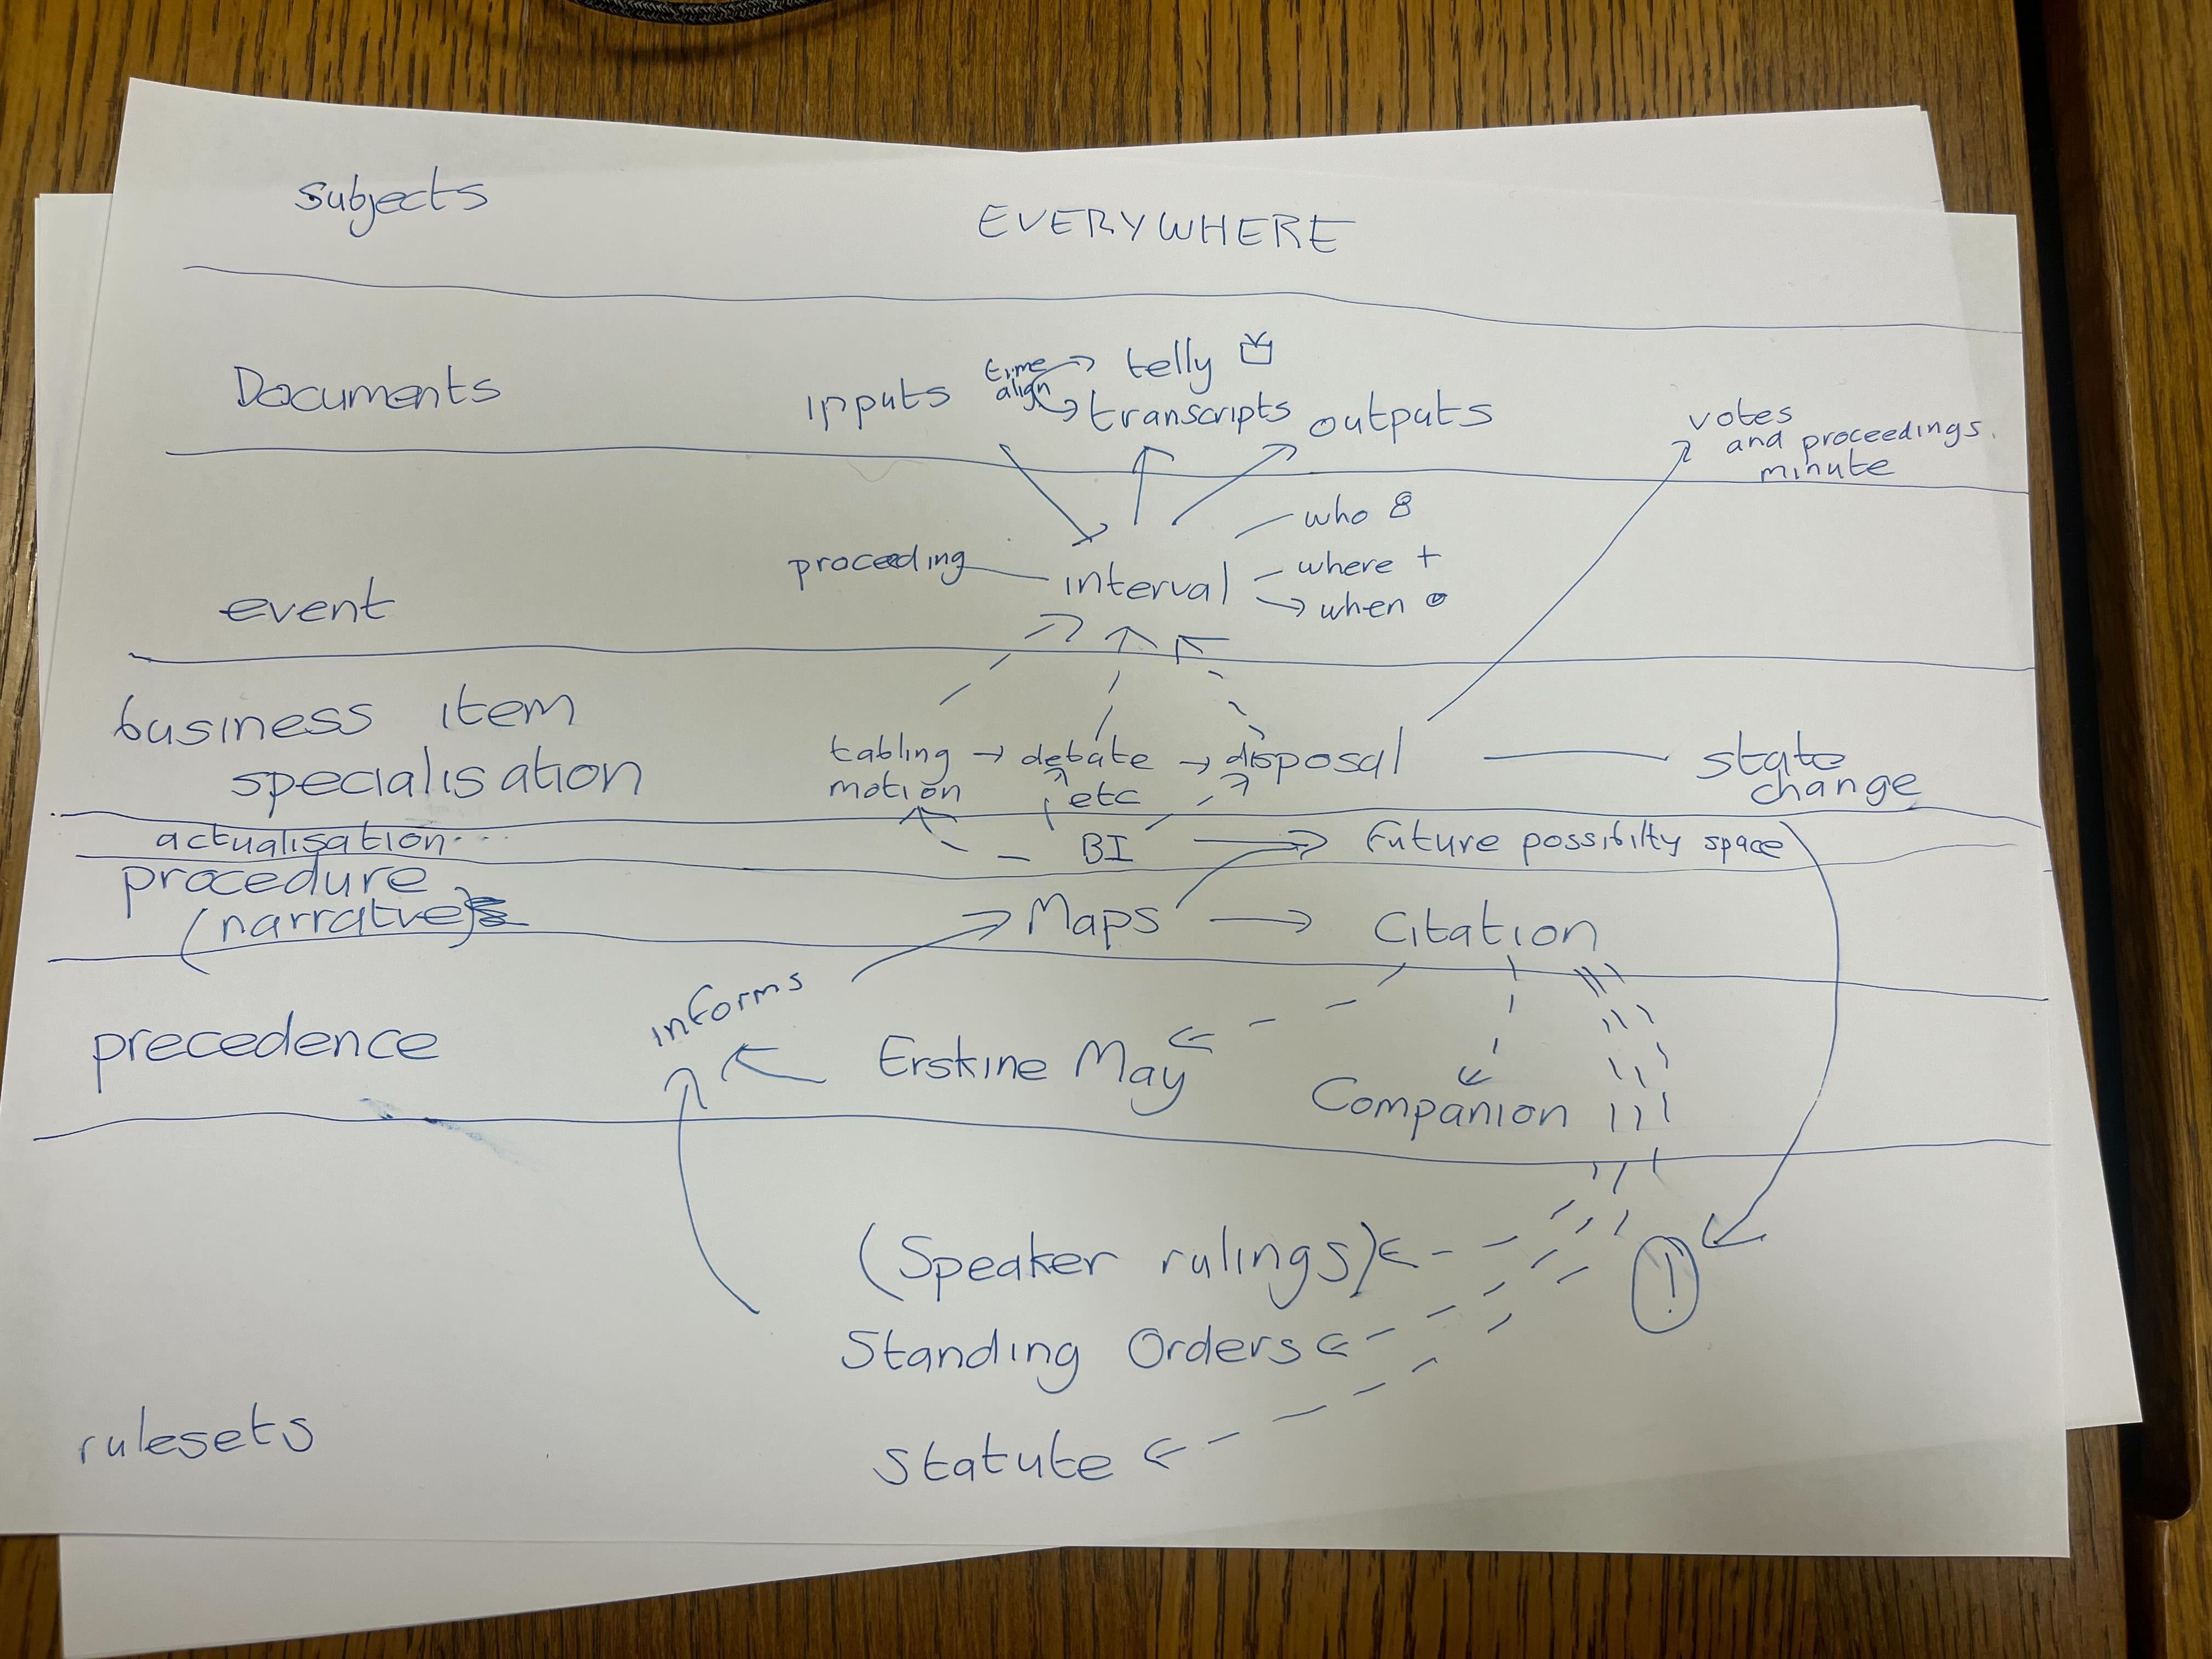 subjects
EVERYWHERE
Documents
inputs
time
align
telly
transcripts
outputs
votes
and proceedings.
minute
event
proceeding
interval
who
where
when
business item
specialisation
tabling
motion
debate
etc
disposal
state
change
actualisation...
BI
Future possibilty space
procedure
(narrative)
Maps
Citation
precedence
informs
Erskine May
Companion
rulesets
(Speaker rulings)
!
Standing Orders
Statute